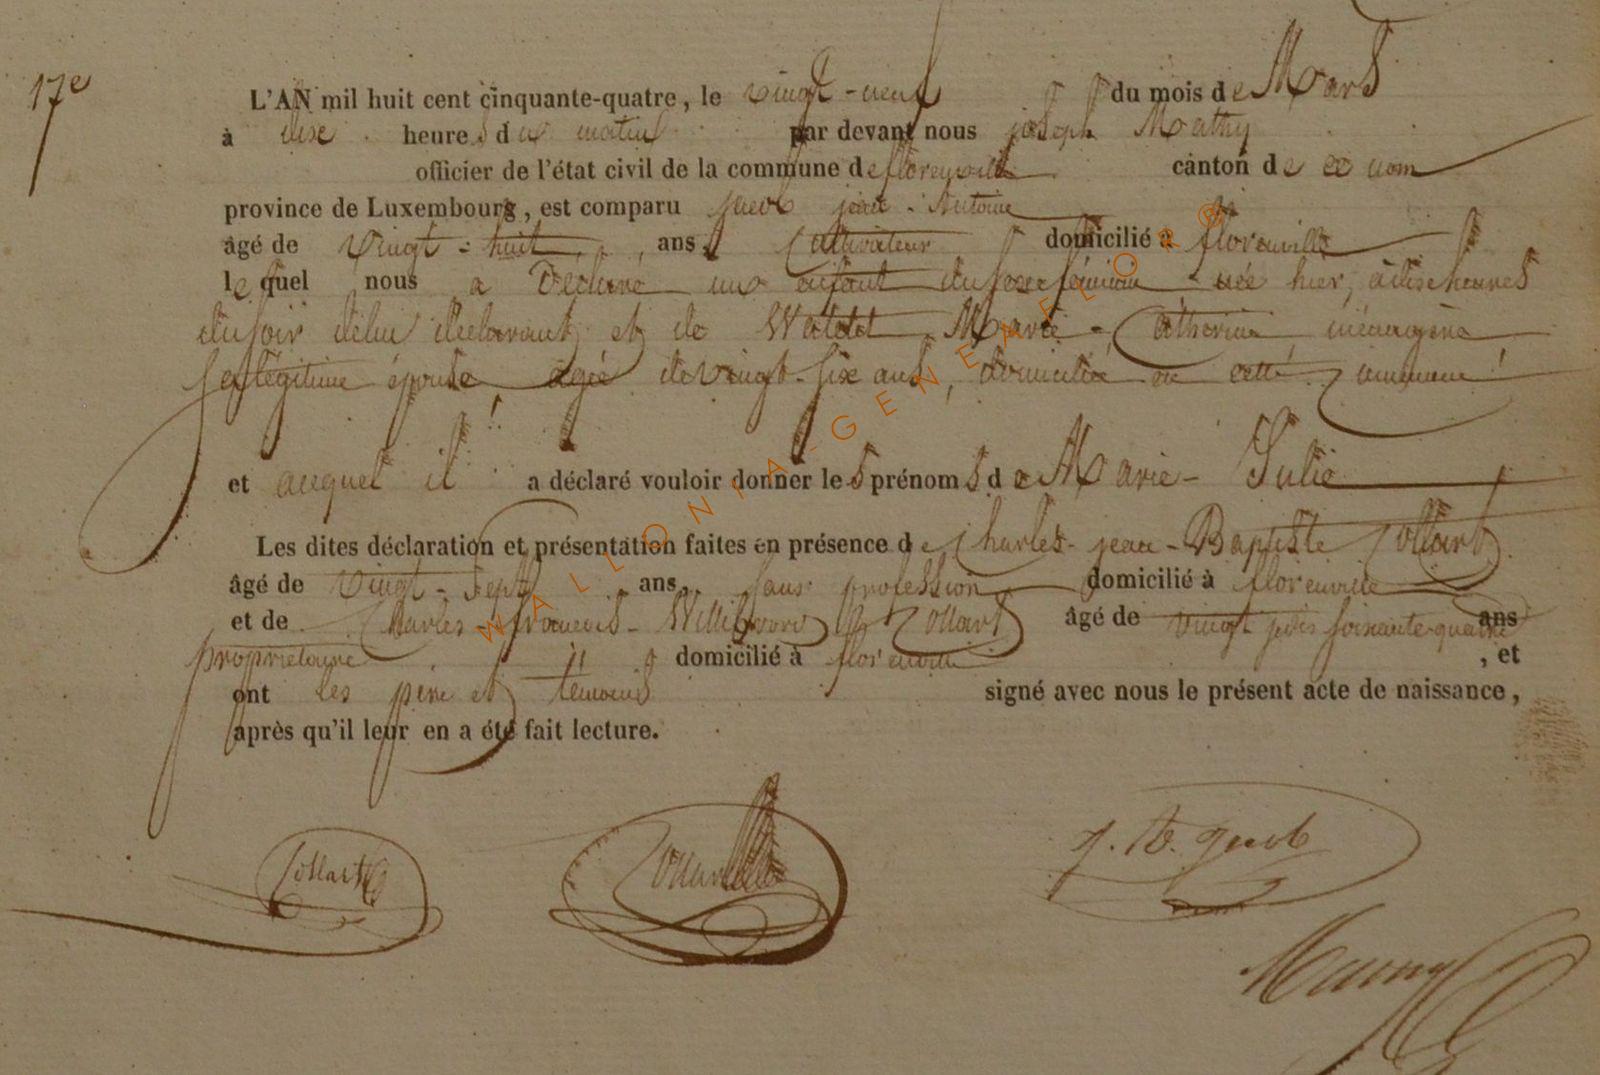 17e
L'AN mil huit cent cinquante-quatre, le vingt-neuf du mois de Mars
à dix heures du matin par devant nous joseph Mathy
officier de l'état civil de la commune de florenville canton de ce nom
province de Luxembourg, est comparu jacob jean-Antoine
âgé de vingt-huit ans, Cultivateur domicilié à florenville
lequel nous a déclaré un enfant du sexe féminin née hier, à dix heures
du soir de lui déclarant et de Watelet Marie-Catherine, ménagère
sa légitime épouse agée de vingt-six ans, domiciliée en cette commune!
et auquel il a déclaré vouloir donner les prénoms de Marie-Julie
Les dites déclaration et présentation faites en présence de Charles-jean-Baptiste Collart
âgé de vingt-sept ans, sans profession domicilié à florenville
et de Charles-françois-Willibrord Collart âgé de soixante-quatre ans
propriétaire domicilié à florenville, et
ont les père et témoins signé avec nous le présent acte de naissance,
après qu'il leur en a été fait lecture.
Collart Collart J. A. Jacob
WALLONIA-GENEAFLOR®